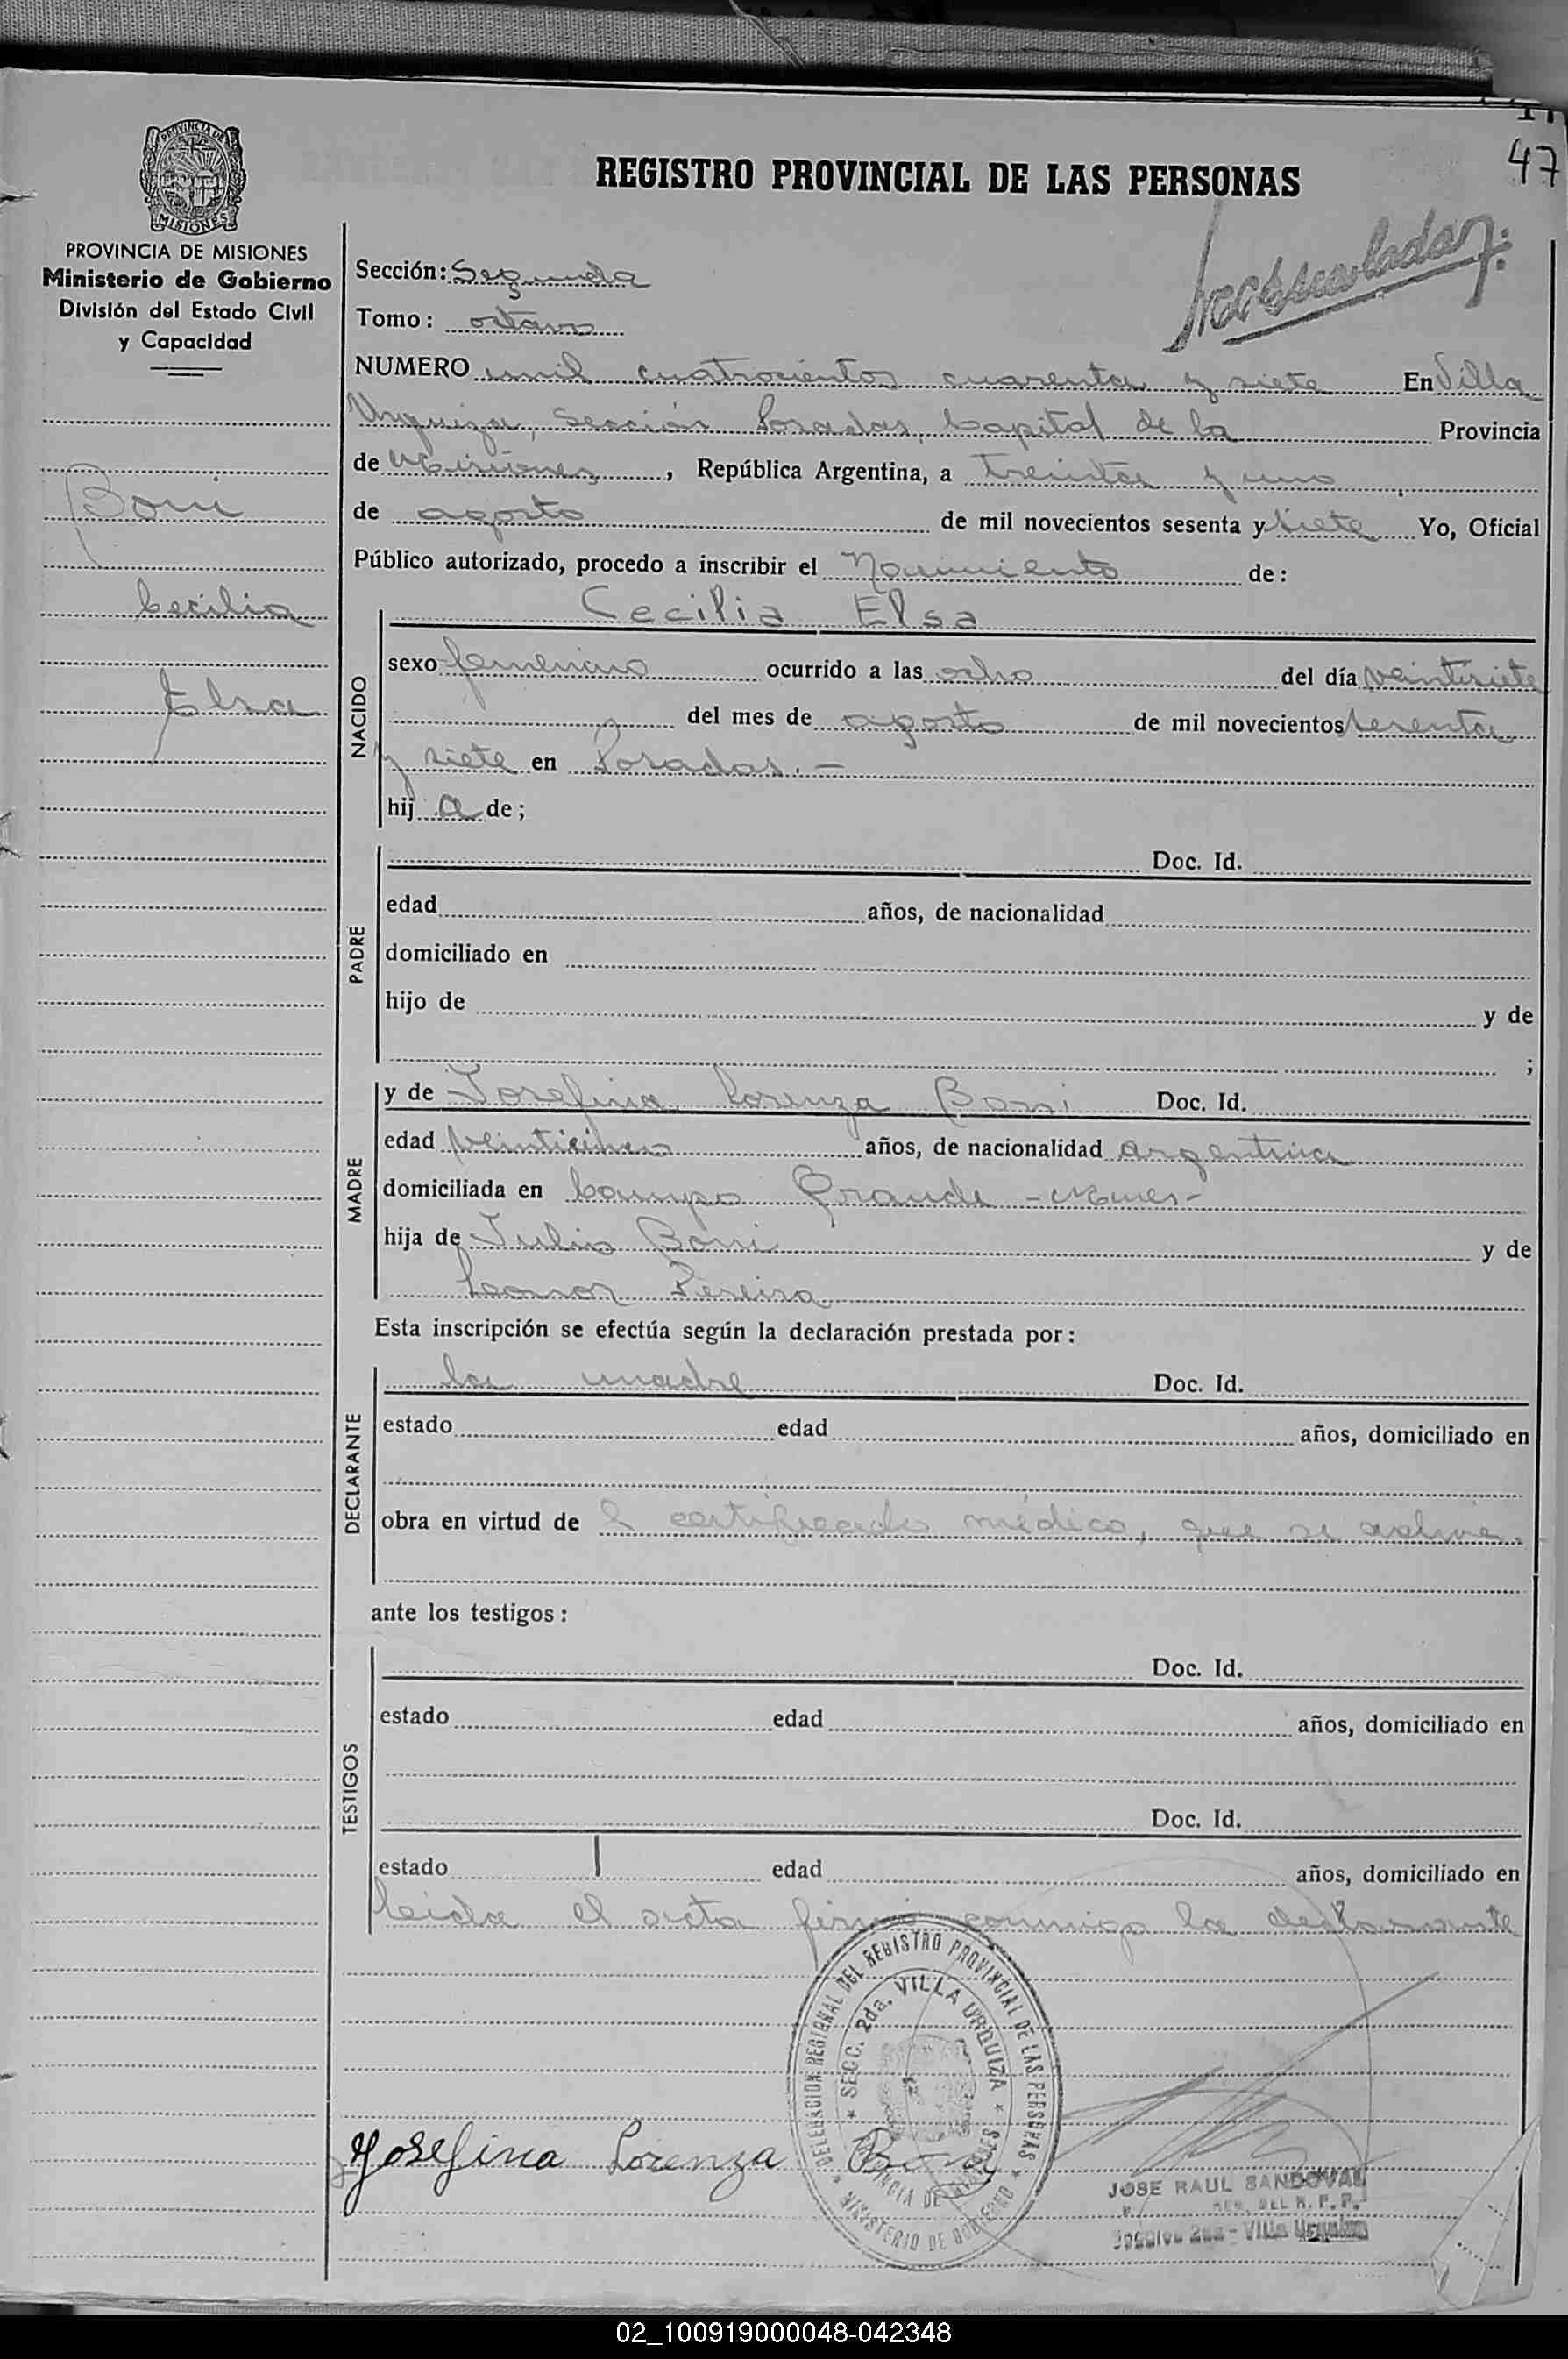 47
REGISTRO PROVINCIAL DE LAS PERSONAS
PROVINCIA DE
MISIONES
PROVINCIA DE MISIONES
Ministerio de Gobierno
División del Estado Civil
y Capacidad
Boni
Cecilia
Elsa
Sección: Segunda
Tomo: octavo
NUMERO mil cuatrocientos cuarenta y siete En Villa
Urquiza, Sección Posadas, Capital de la Provincia
de Misiones, República Argentina, a treinta y uno
de agosto de mil novecientos sesenta y siete Yo, Oficial
Público autorizado, procedo a inscribir el Nacimiento de:
Cecilia Elsa
NACIDO
sexo femenino ocurrido a las ocho del día veintisiete
del mes de agosto de mil novecientos sesenta
y siete en Posadas.-
hij a de;
PADRE
Doc. Id.
edad años, de nacionalidad
domiciliado en
hijo de y de
;
MADRE
y de Josefina Lorenza Boni Doc. Id.
edad veinticinco años, de nacionalidad argentina
domiciliada en Campo Grande
hija de Julio Boni y de
Leonor Pereira
Esta inscripción se efectúa según la declaración prestada por:
DECLARANTE
la madre Doc. Id.
estado edad años, domiciliado en
obra en virtud de certificado médico, que se archiva.
ante los testigos:
TESTIGOS
Doc. Id.
estado edad años, domiciliado en
Doc. Id.
estado edad años, domiciliado en
Leída el acta firmó conmigo la declarante
DELEGACION REGIONAL DEL REGISTRO PROVINCIAL DE LAS PERSONAS
* SECC. 2da. VILLA URQUIZA *
PROVINCIA DE MISIONES
* MINISTERIO DE GOBIERNO *
Josefina Lorenza Boni
JOSE RAUL SANDOVAL
DEL R. P. P.
2da - Villa Urquiza
02_100919000048-042348